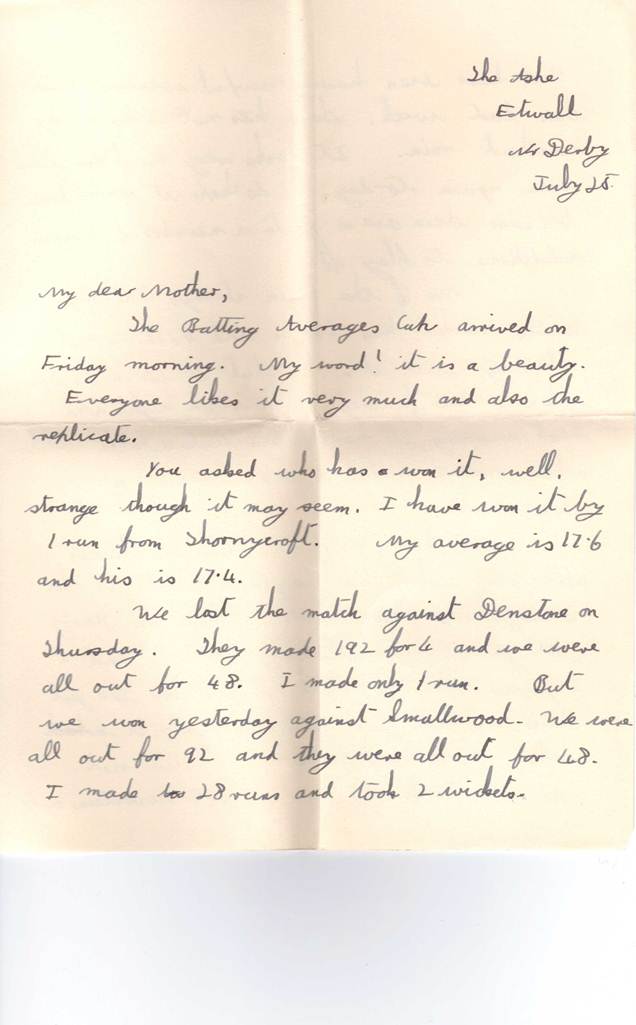 The Ashe
Etwall
Nr Derby
July 25.
My dear Mother,
The Batting Averages Cup arrived on
Friday morning. My word! it is a beauty.
Everyone likes it very much and also the
replicate.
You asked who has won it, well,
strange though it may seem. I have won it by
1 run from Thornycroft. My average is 17.6
and his is 17.4.
We lost the match against Denstone on
Thursday. They made 192 for 4 and we were
all out for 48. I made only 1 run. But
we won yesterday against Smallwood. We were
all out for 92 and they were all out for 48.
I made 28 runs and took 2 wickets.